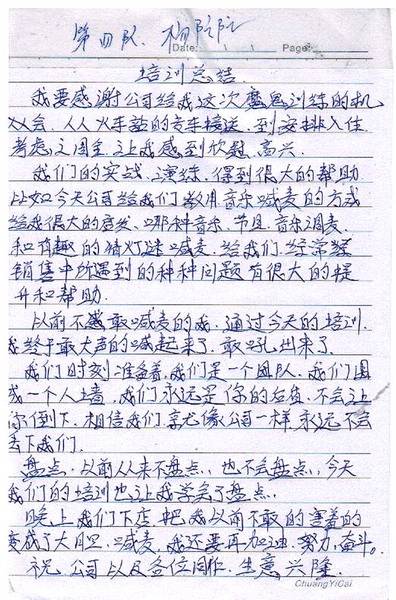 第四队、杨阶阶
Date:
Page:
培训总结.
我要感谢公司给我这次魔鬼训练的机
会. 从火车站的专车接送. 到安排入住.
考虑之周全. 让我感到欣慰. 高兴.
我们的实战. 演练. 得到很大的帮助
比如今天公司给我们教用音乐喊麦的方式
给我很大的启发. 哪种音乐. 节日. 音乐调麦.
和有趣的猜灯谜喊麦. 给我们经常经
销售中所遇到的种种问题有很大的提
升和帮助.
以前不敢喊麦的我. 通过今天的培训.
我终于敢大声的喊起来了. 敢吼出来了.
我们时刻准备着. 我们是一个团队. 我们围
成一个人墙. 我们永远是你的后盾. 不会让
你倒下. 相信我们. 就像公司一样. 永远不会
丢下我们.
盘点. 以前从来不盘点. 也不会盘点. 今天
我们的培训也让我学会了盘点.
晚上我们下店. 把我以前不敢的害羞的
变成了大胆. 喊麦. 我还要再加油. 努力. 奋斗。
祝公司以及各位同仁. 生意兴隆
ChuangYiCai